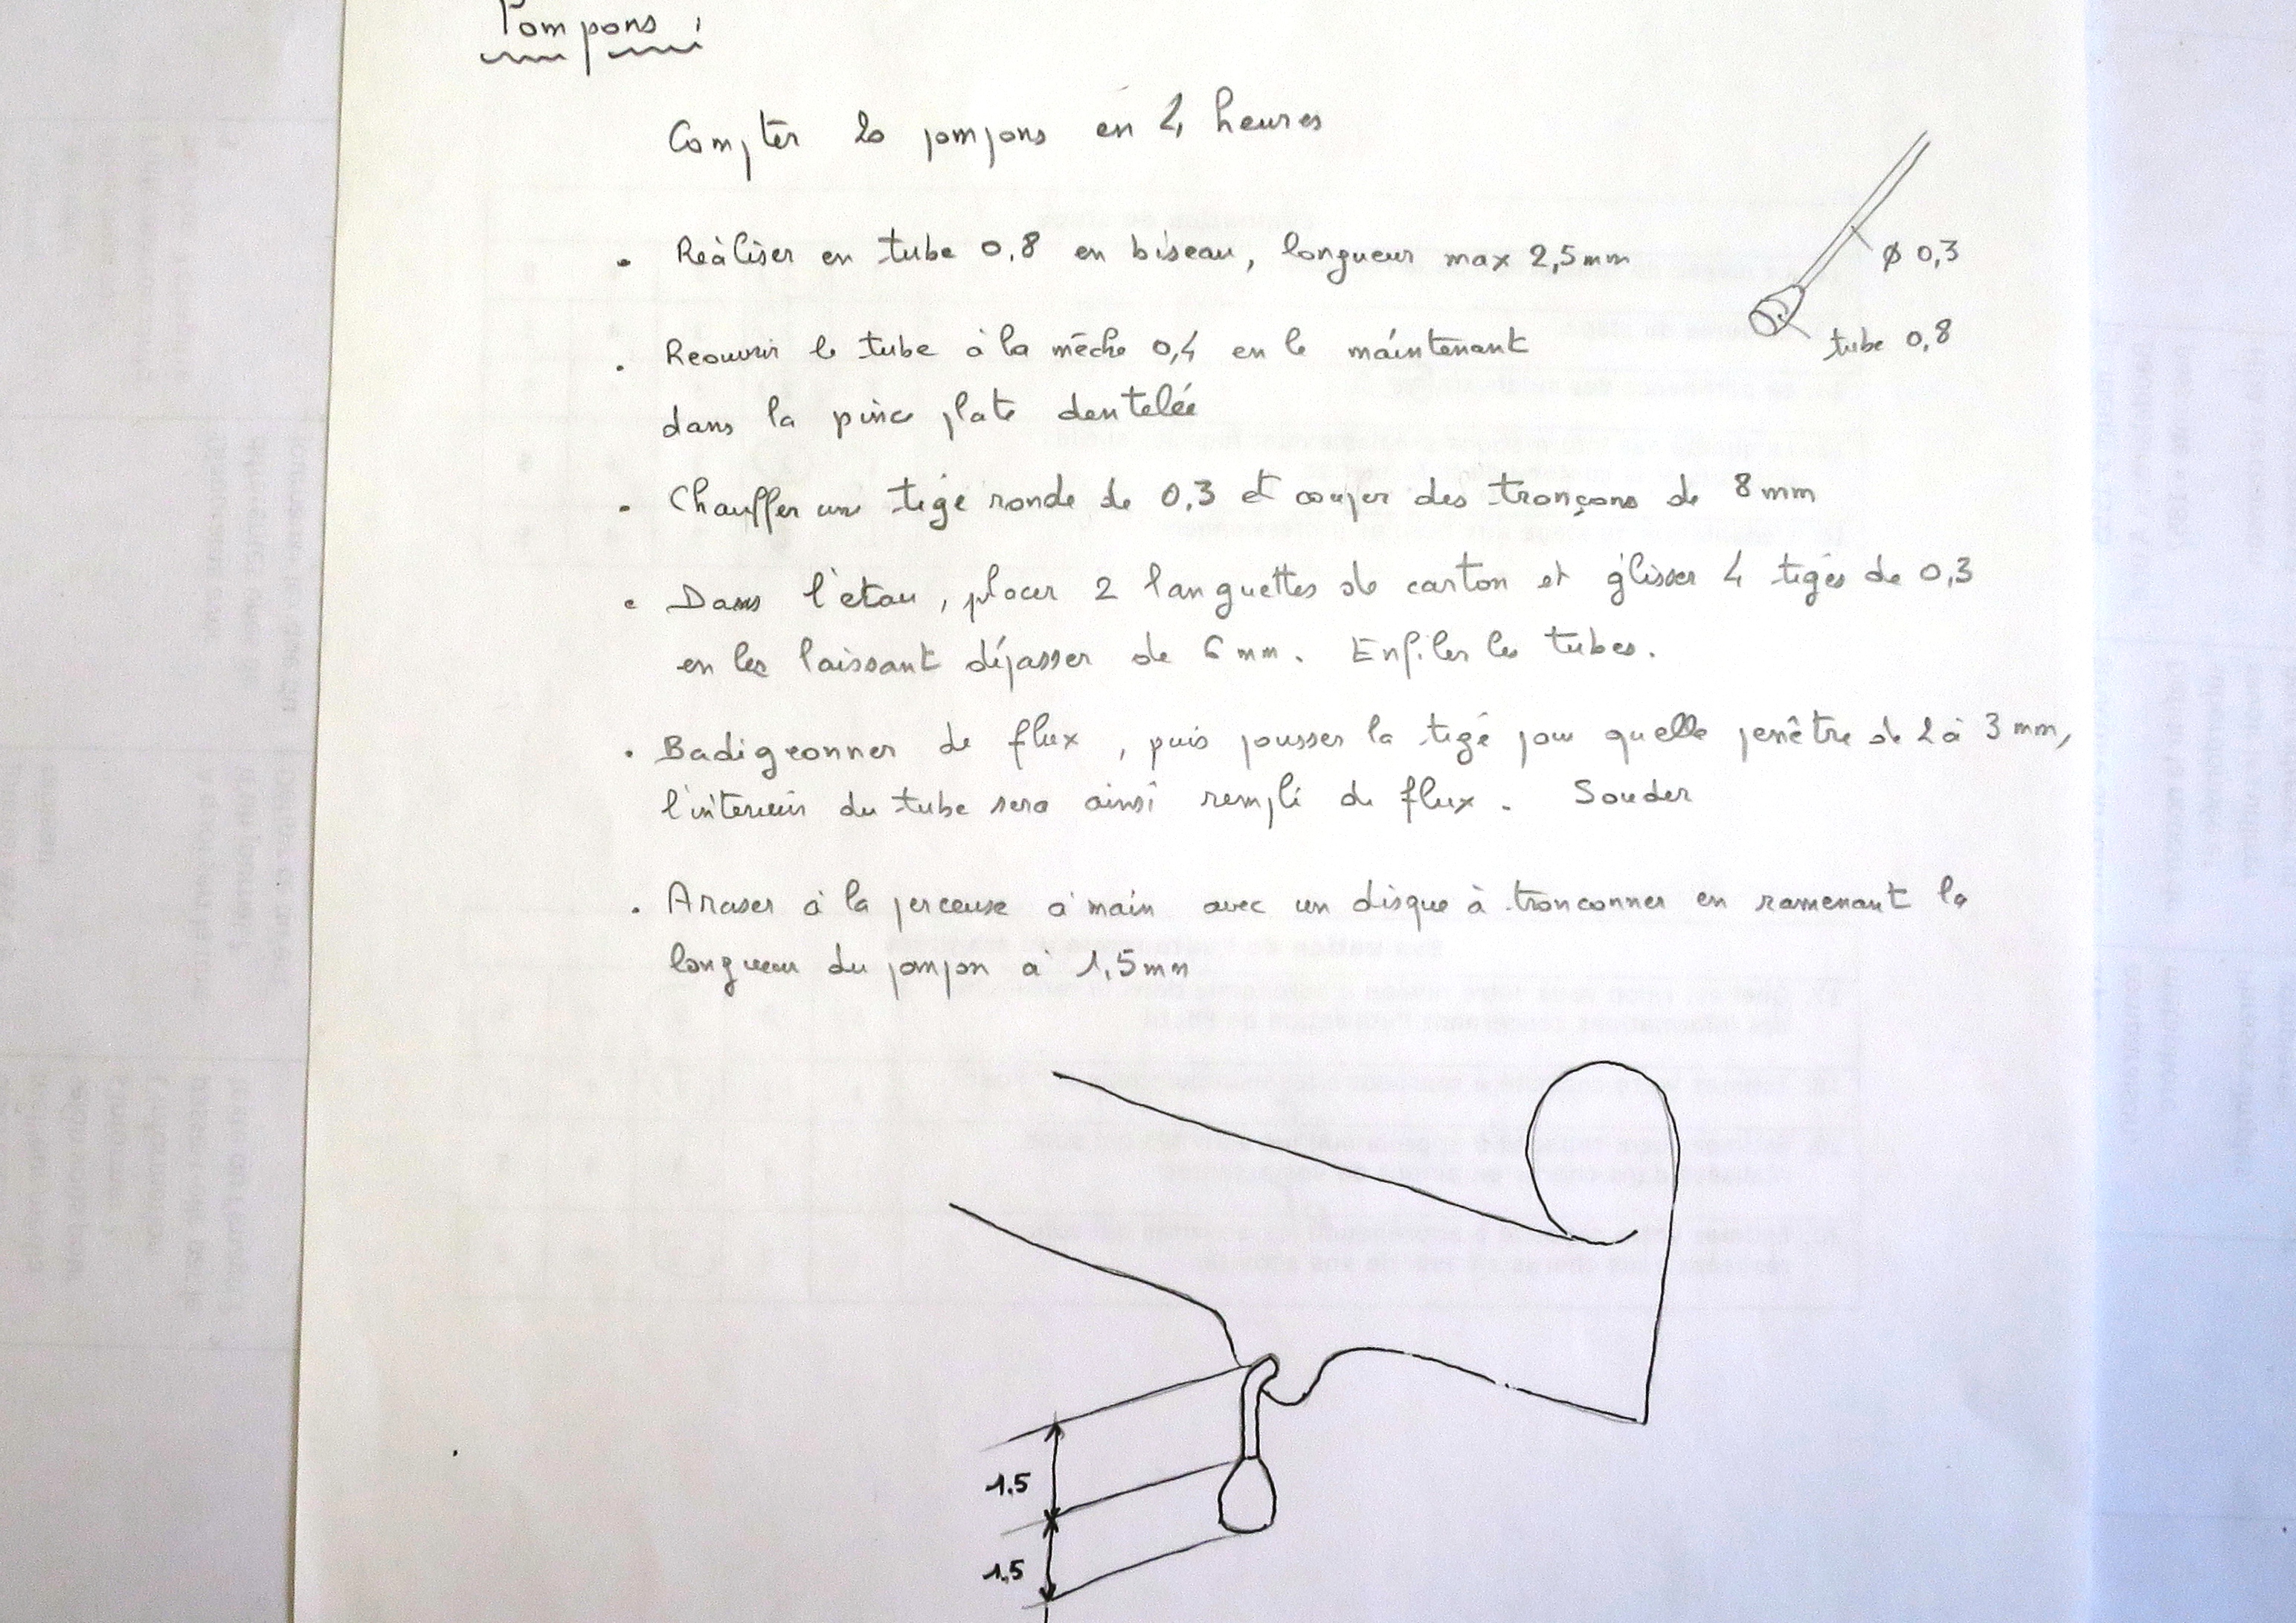 Pompons :
Compter 20 pompons en 2 heures
• Réaliser en tube 0,8 en biseau, longueur max 2,5mm
ø 0,3
tube 0,8
• Reouvrir le tube à la mèche 0,4 en le maintenant
dans la pince plate dentelée
• Chauffer une tige ronde de 0,3 et couper des tronçons de 8mm
• Dans l'etau, placer 2 languettes de carton et glisser 4 tiges de 0,3
en les laissant dépasser de 6mm. Enfiler les tubes.
• Badigeonner de flux, puis pousser la tige pour quelle penêtre de 2 à 3 mm,
l'interieur du tube sera ainsi rempli de flux. Souder
• Araser à la perceuse à main avec un disque à tronconner en ramenant la
longueur du pompon à 1,5mm
1.5
1.5